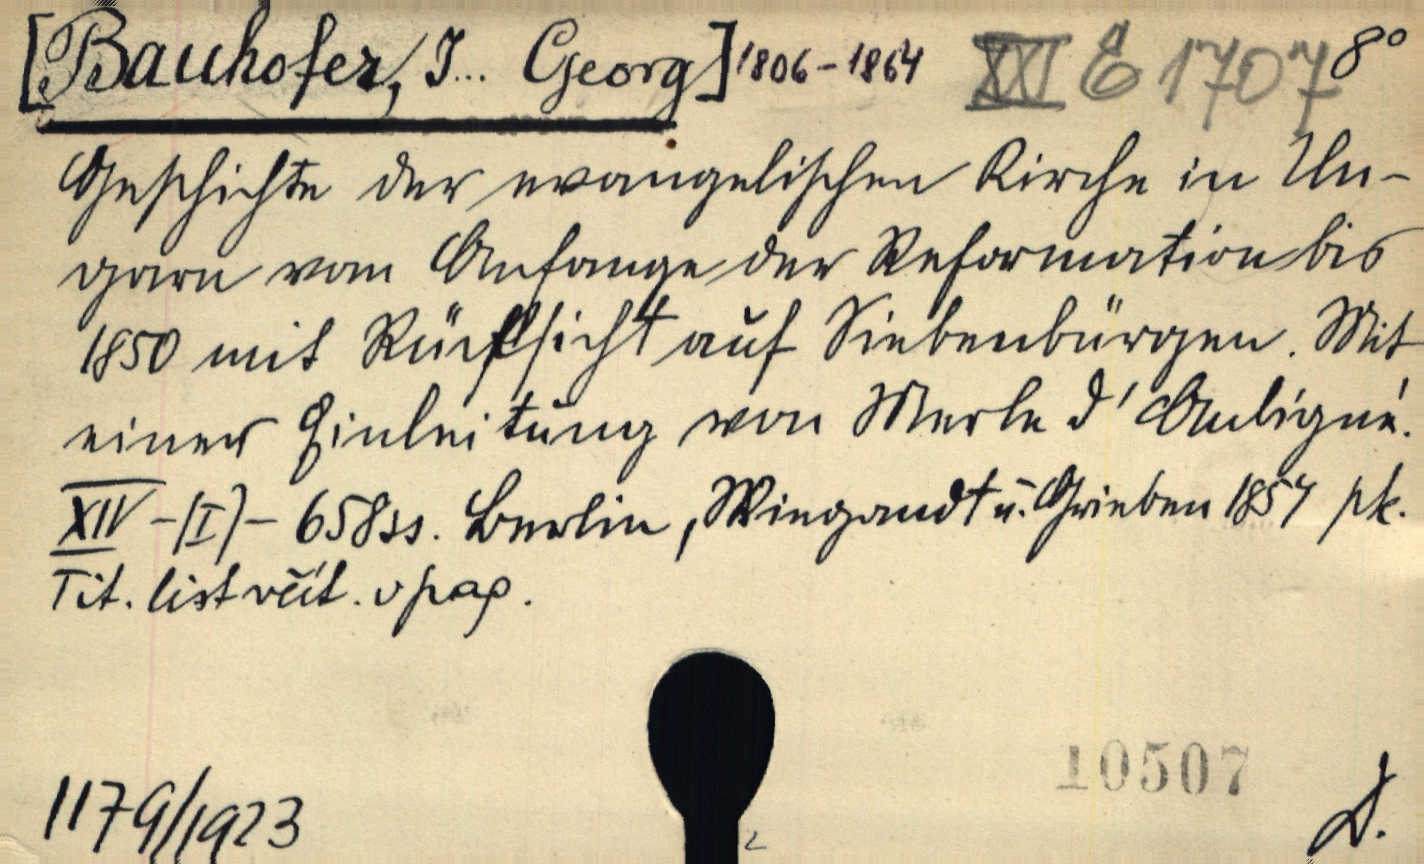 [Bauhofer, J... Georg] 1806-1864 XXI E 1707 8°
Geschichte der evangelischen Kirche in Un-
garn vom Anfange der Reformation bis
1850 mit Rücksicht auf Siebenbürgen. Mit
einer Einleitung von Merle d'Aubigné.
XIV-(I)-658ss. Berlin, Wiegandt u. Grieben 1854 pk.
Tit. list včít. v pag.
10507
1179/1923
2